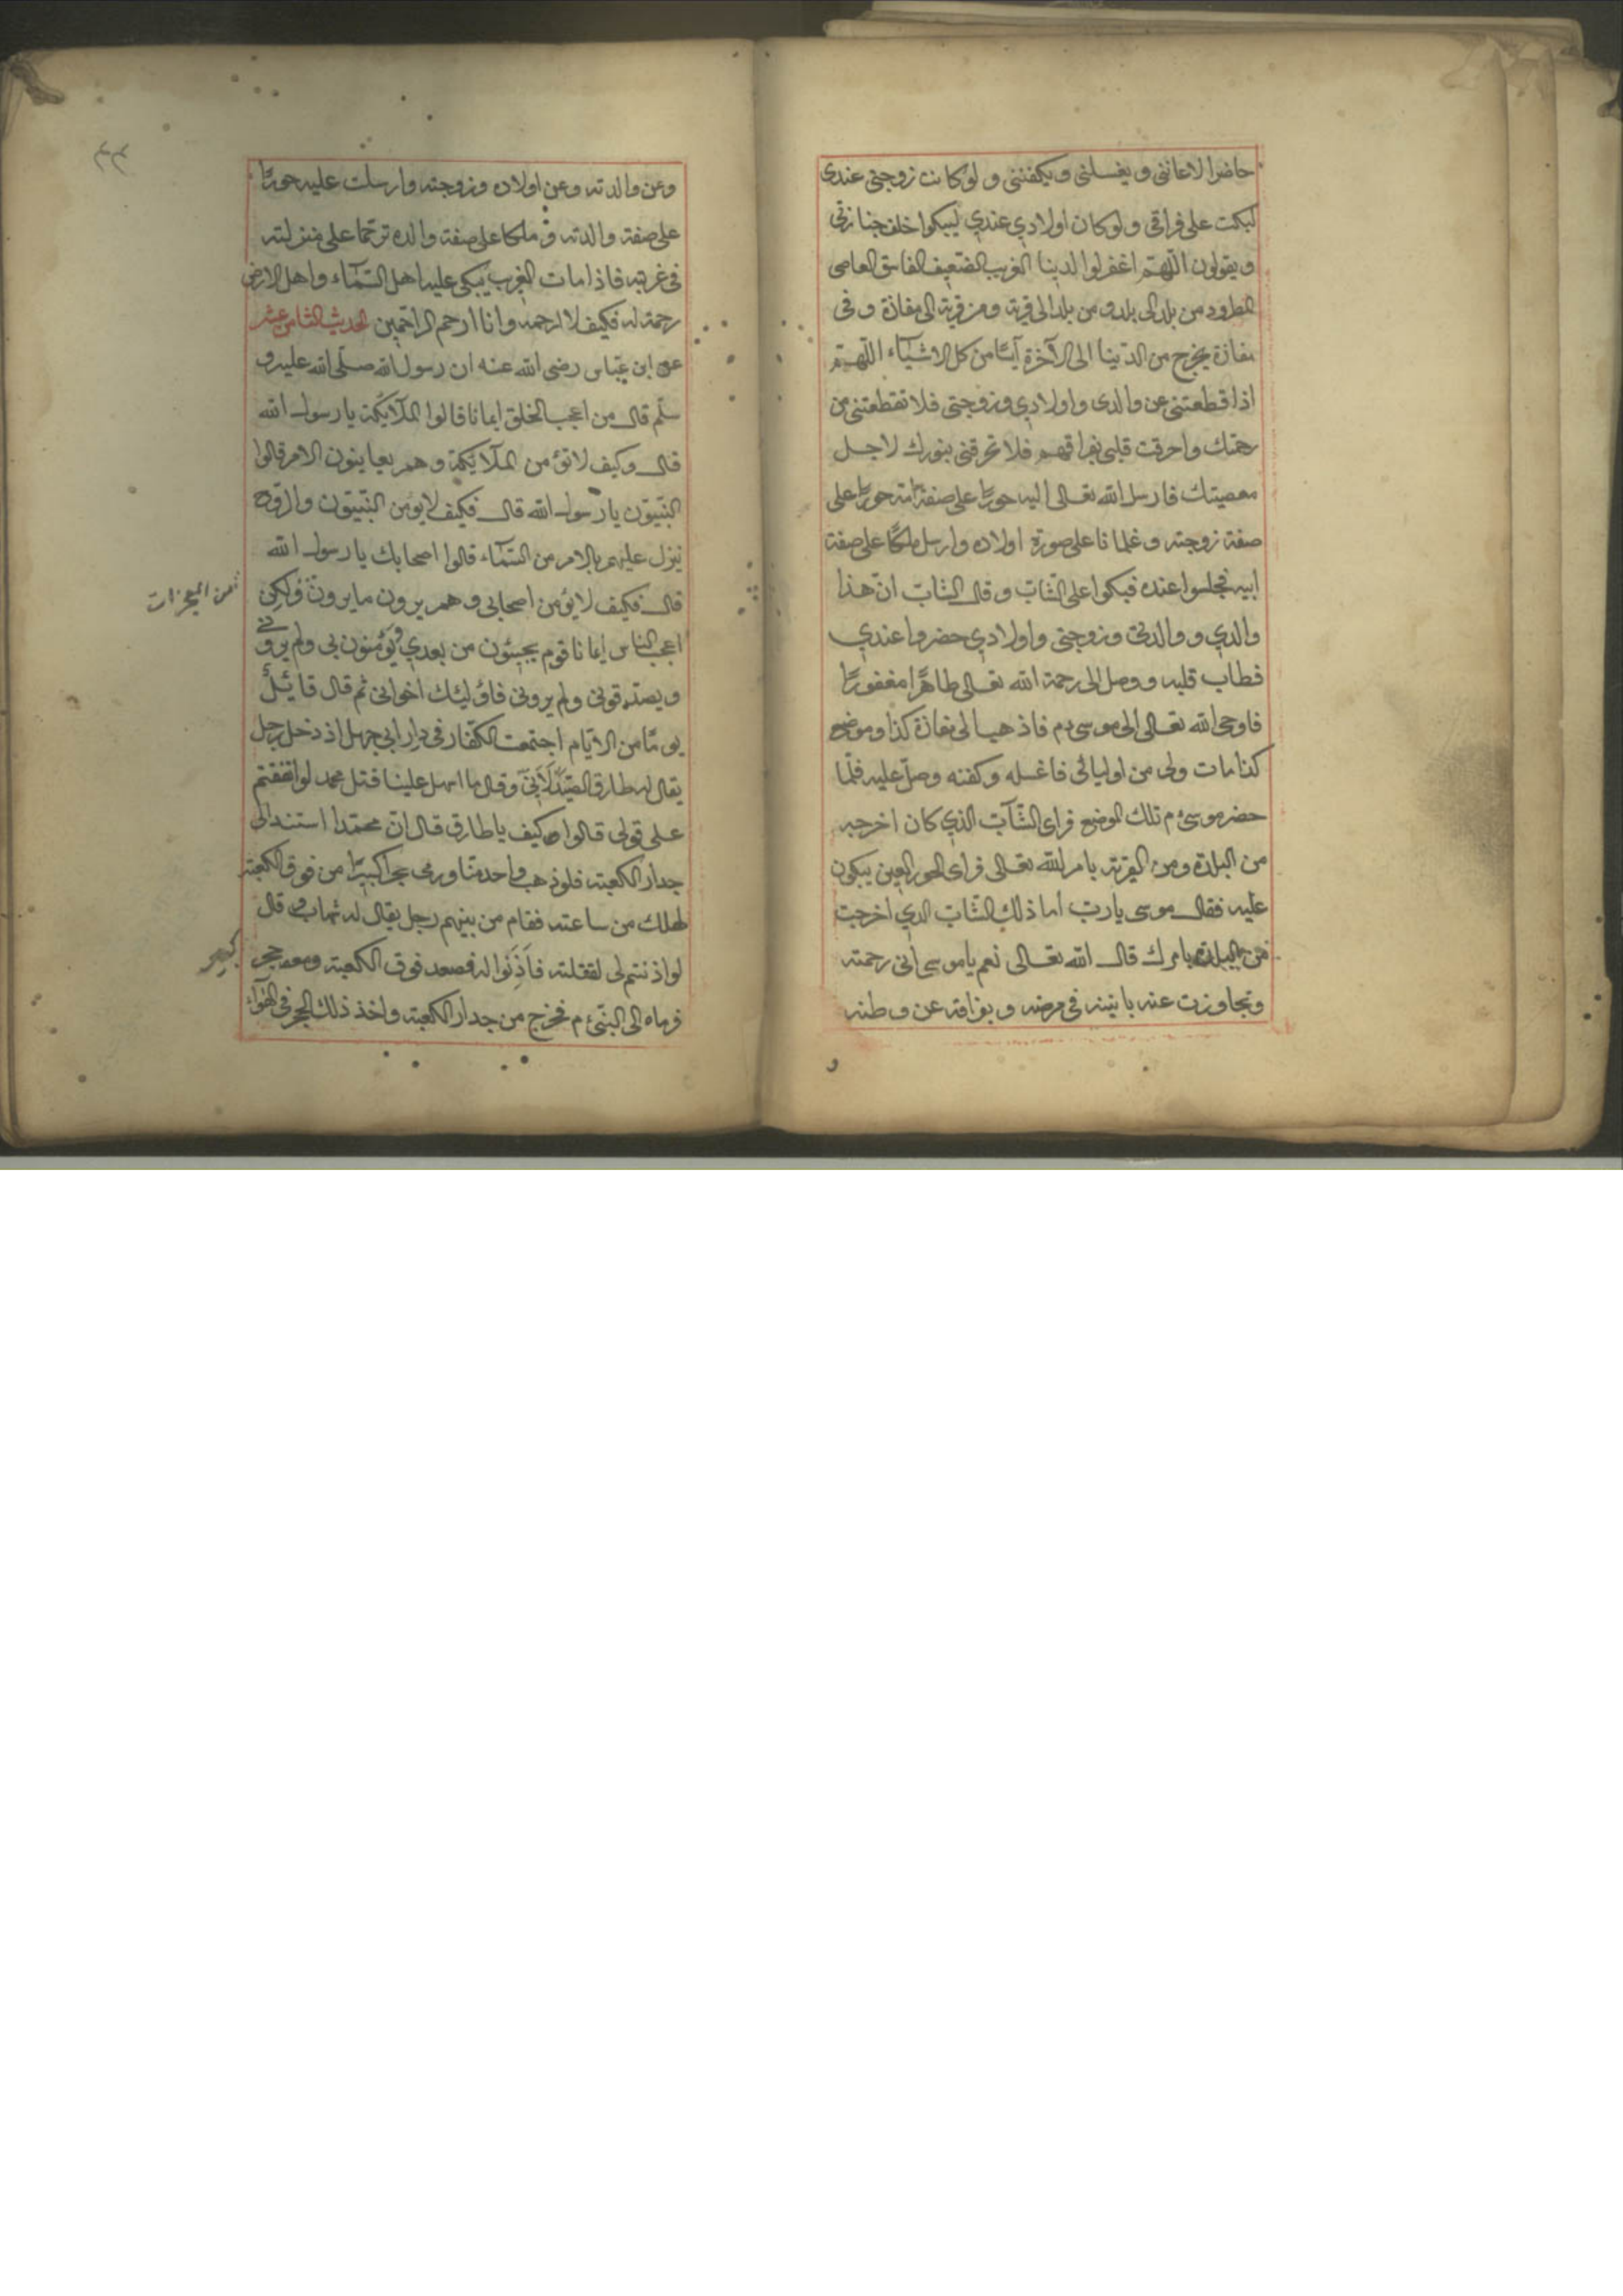 حاضرا لاعاننى و يغسلنى و يكفننى و لو كانت زوجتى عندى
لبكت على فراقى و لو كان اولادي عندي ليبكوا خلف جنازتى
و يقولون اللهم اغفر لوالدينا الغريب الضعيف الفاسق العاصى
المطرود من بلد الى بلد و من بلد الى قرية و من قرية الى مفازة و فى
مفازة يخرج من الدينا الى الآخرة آيسا من كل الاشيآء اللهم
اذا قطعتنى عن والدى و اولادي و زوجتى فلا تقطعتنى من
رحمتك واحرقت قلبى بفراقهم فلا تحرقنى بنورك لاجل
معصيتك فارسل الله تعالى اليه حوريا على صفة امه حوريا على
صفة زوجته و غلمانا على صورة اولاده وارسل ملكا على صفة
ابيه فجلسوا عنده فبكوا على الشاب و قال الشاب ان هذا
والدي و والدتى و زوجتى و اولادي حضروا عندي
فطاب قلبه و وصل الى رحمة الله تعالى طاهرا مغفورا
فاوحى الله تعالى الى موسى ءم فاذهب الى مفازة كذا و موضع
كذا مات ولى من اوليائى فاغسله و كفنه وصل عليه فلما
حضر موسى ءم تلك الموضع فراى الشآب الذي كان اخرجه
من البلدة و من القرية بامر الله تعالى فراى الحور العين يبكون
عليه فقال موسى يارب أما ذلك الشاب الذي اخرجت
من البلدة بامرك قال الله تعالى نعم ياموسى انى رحمته
و تجاوزت عنه بانينه فى مرضه و بفراقه عن وطنه
و
وعن والدته و عن اولاده و زوجته وارسلت عليه حوريا
على صفة والدته و ملكا على صفة والده ترحما على منزلته
فى غربته فاذا مات الغريب يبكى عليه اهل السمآء و اهل الارض
رحمة له فكيف لا ارحمه و انا ارحم الراحمين الحديث الثامن عشر
عن ابن عباس رضى الله عنه ان رسول الله صلى الله عليه و
سلم قال من اعجب الخلق ايمانا قالوا الملآئكة يا رسول الله
قال و كيف لا تؤمن الملآئكة و هم يعاينون الامر قالوا
النبيون يا رسول الله قال فكيف لا يؤمن النبيون و الروح
ينزل عليهم بالامر من السمآء قالوا اصحابك يا رسول الله
قال فكيف لا يؤمن اصحابى و هم يرون ما يرون و لكن
من المعجزات
اعجب الناس ايمانا قوم يجيئون من بعدي يؤمنون بى و لم يرونى
و يصدقونى و لم يرونى فاؤليئك اخوانى ثم قال قائل
يوما من الايام اجتمعت الكفار فى دار ابى جهل اذ دخل رجل
يقال له طارق الصيدلانى و قال ما اسهل علينا قتل محمد لو اتفقتم
على قولى قالوا كيف يا طارق قال ان محمدا استند الى
جدار الكعبة فلو ذهب واحد منا و رمى حجرا كبيرا من فوق الكعبة
لهلك من ساعته فقام من بينهم رجل يقال له شهاب قال
لو اذنتم لى لقتلته فاذنوا له فصعد فوق الكعبة و معه حجر
كبير
فرماه الى النبى ءم فخرج من جدار الكعبة و اخذ ذلك الحجر فى الهوآء